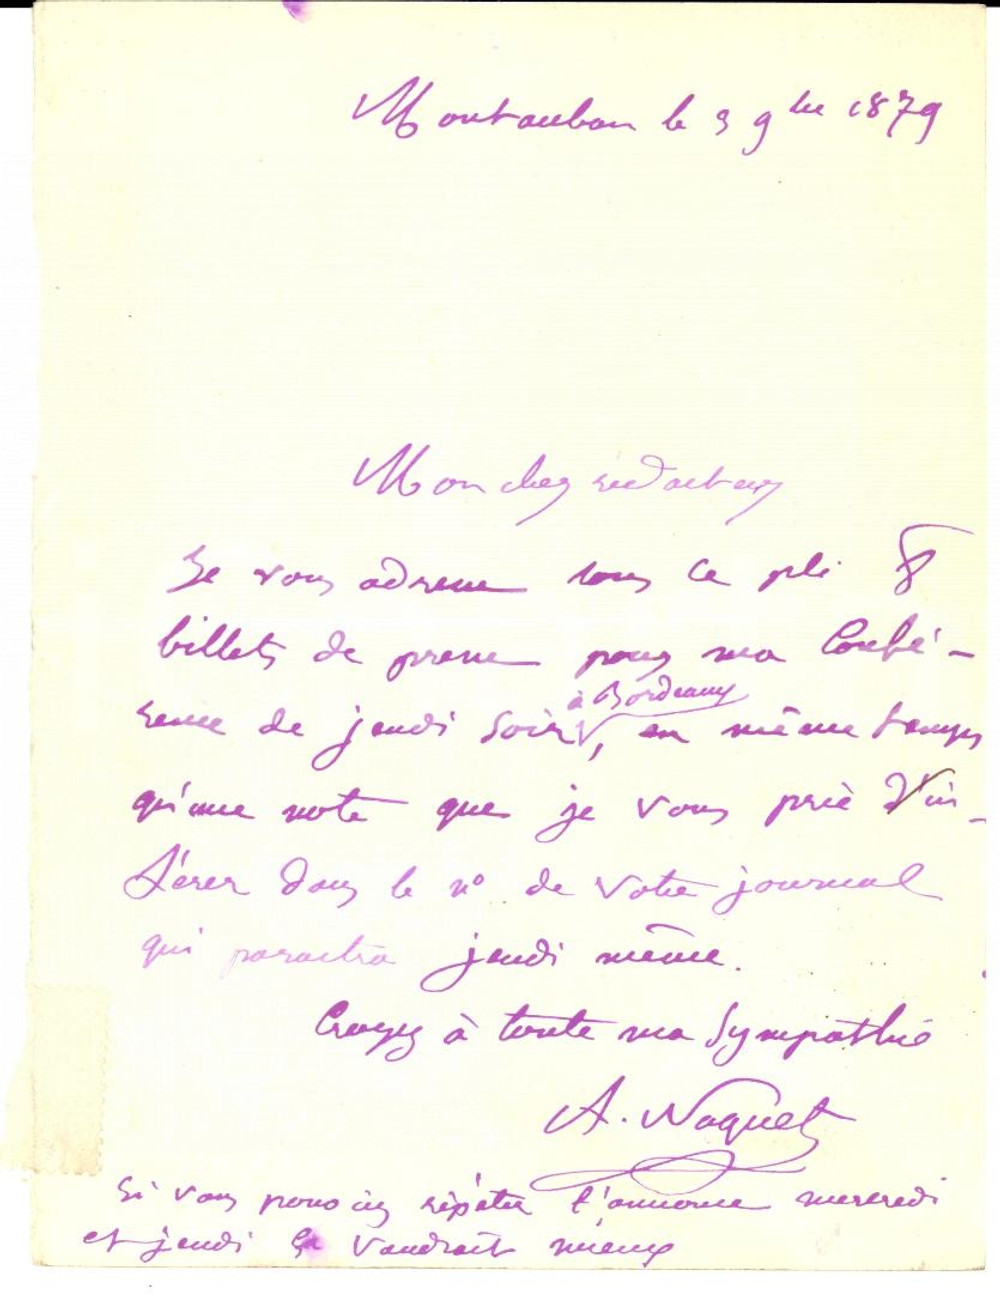 Montauban le 3 9bre 1879
Mon cher rédacteur
Je vous adresse sous ce pli 8
billets de presse pour ma Confé-
rence de jeudi soir à Bordeaux, en même temps
qu'une note que je vous prie d'in-
sérer dans le n° de votre journal
qui paraitra jeudi même.
Croyez à toute ma sympathie
A. Naquet
Si vous pouviez répéter l'annonce mercredi
et jeudi ça vaudrait mieux